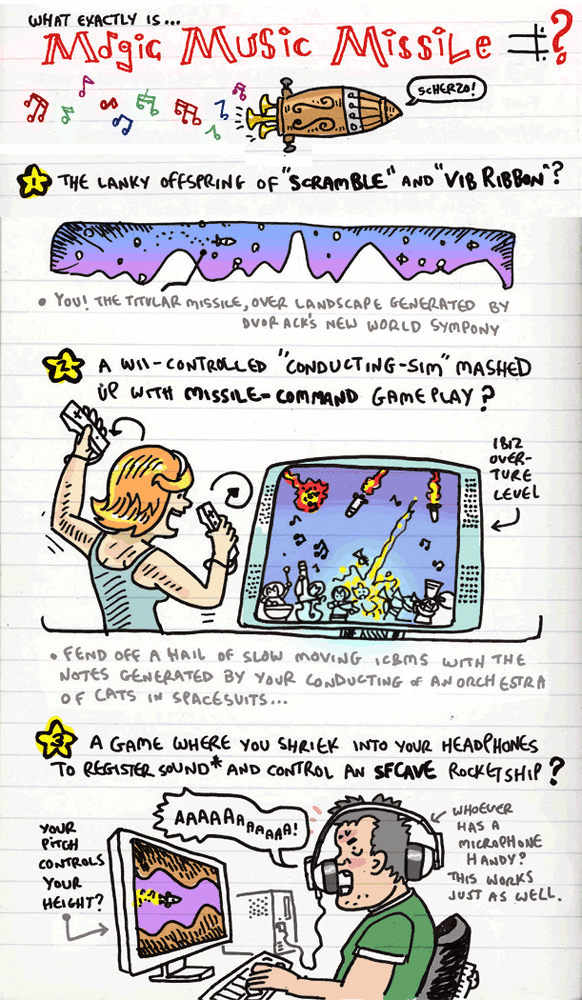 WHAT EXACTLY IS...
MAGIC MUSIC MISSILE #?
SCHERZO!
1 THE LANKY OFFSPRING OF "SCRAMBLE" AND "VIB RIBBON"?
• YOU! THE TITULAR MISSILE, OVER LANDSCAPE GENERATED BY
DVORACK'S NEW WORLD SYMPONY
2 A WII-CONTROLLED "CONDUCTING-SIM" MASHED
UP WITH MISSILE-COMMAND GAMEPLAY?
1812
OVER-
TURE
LEVEL
• FEND OFF A HAIL OF SLOW MOVING ICBMS WITH THE
NOTES GENERATED BY YOUR CONDUCTING OF AN ORCHESTRA
OF CATS IN SPACESUITS...
3 A GAME WHERE YOU SHRIEK INTO YOUR HEADPHONES
TO REGISTER SOUND* AND CONTROL AN SFCAVE ROCKETSHIP?
AAAAAAAAAAA!
YOUR
PITCH
CONTROLS
YOUR
HEIGHT?
WHOEVER
HAS A
MICROPHONE
HANDY?
THIS WORKS
JUST AS WELL.